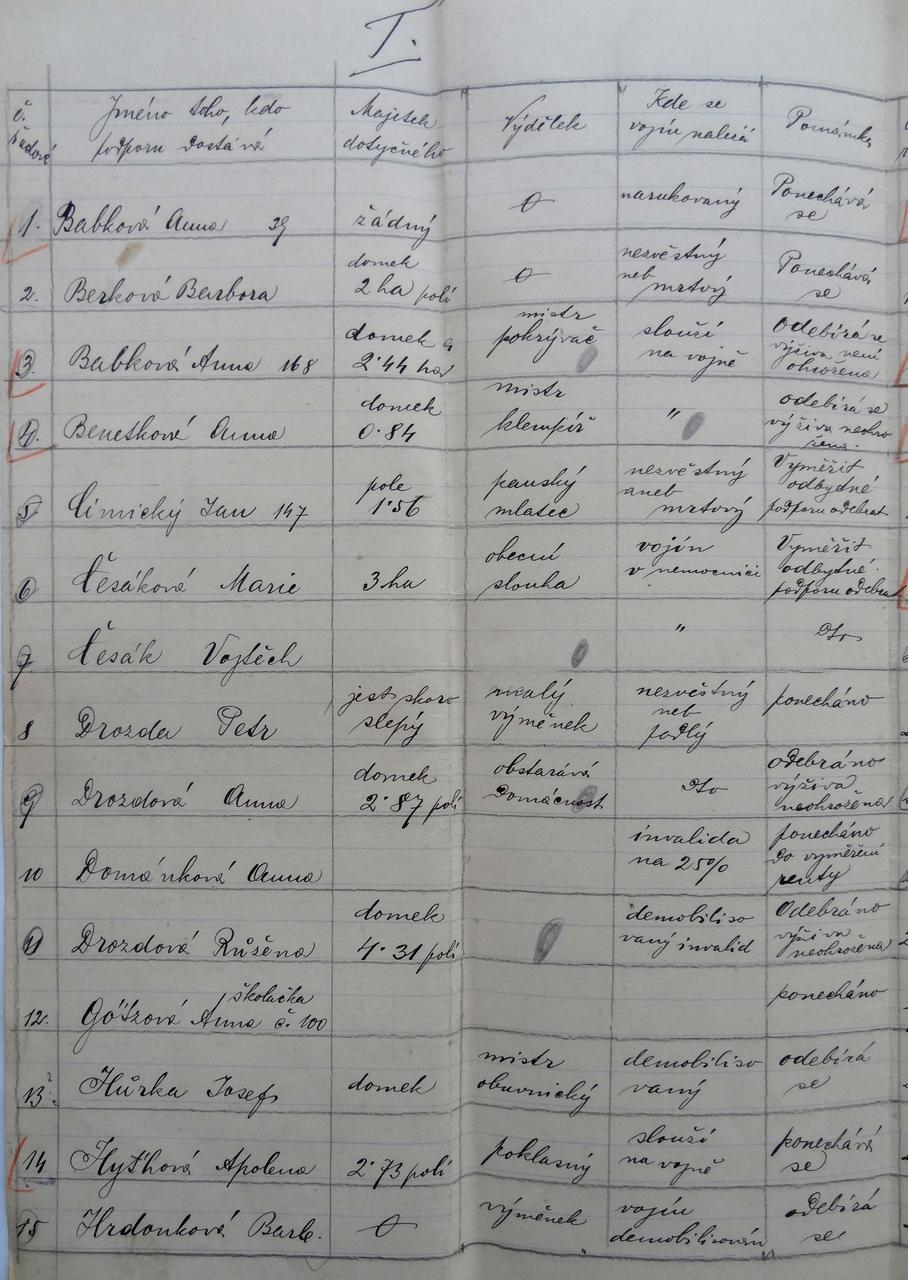 I.
č. řadové
Jméno toho, kdo podporu dostává
Majetek dotyčného
Výdělek
Kde se vojín nalezá
Poznámka
1. Babková Anna 39 žádný 0 narukovaný Ponechává se
2. Berková Barbora domek 2 ha polí 0 nezvěstný neb mrtvý Ponechává se
3. Babková Anna 168 domek a 2·44 ha mistr pokrývač slouží na vojně Odebírá se výživa není ohrožena
4. Benešková Anna domek 0·84 mistr klempíř " odebírá se výživa neohrožena
5 Cimický Jan 147 pole 1·56 panský mlatec nezvěstný aneb mrtvý Vyměřit odbytné podporu odebrat
6 Česáková Marie 3 ha obecní slouha vojín v nemocnici Vyměřit odbytné. podporu odebrat
7 Česák Vojtěch " Dto
8 Drozda Petr jest skoro slepý malý výměnek nezvěstný neb padlý ponecháno
9 Drozdová Anna domek 2·87 polí obstarává Domácnost Dto odebráno výživa neohrožena
10 Dománková Anna invalida na 25% ponecháno do vyměření renty
11 Drozdová Růžena domek 4·31 polí demobilisovaný invalid Odebráno výživa neohrožena
12. Götzová Anna školačka č. 100 ponecháno
13. Hůrka Josef domek mistr obuvnický demobilisovaný odebírá se
14 Hyťhová Apolena 2·73 polí poklasný slouží na vojně ponechává se
15 Hrdonková Barb. 0 výměnek vojín demobilisován odebírá se